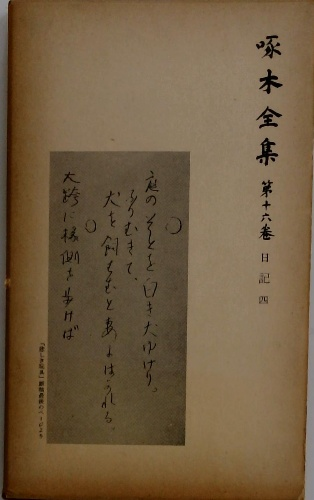 啄木全集 第十六巻 日記 四
庭のそとを白き犬ゆけり。
ふりむきて、
犬を飼はむと妻にはかれる。
大跨に椽側を歩けば
「悲しき玩具」原稿最終のページより